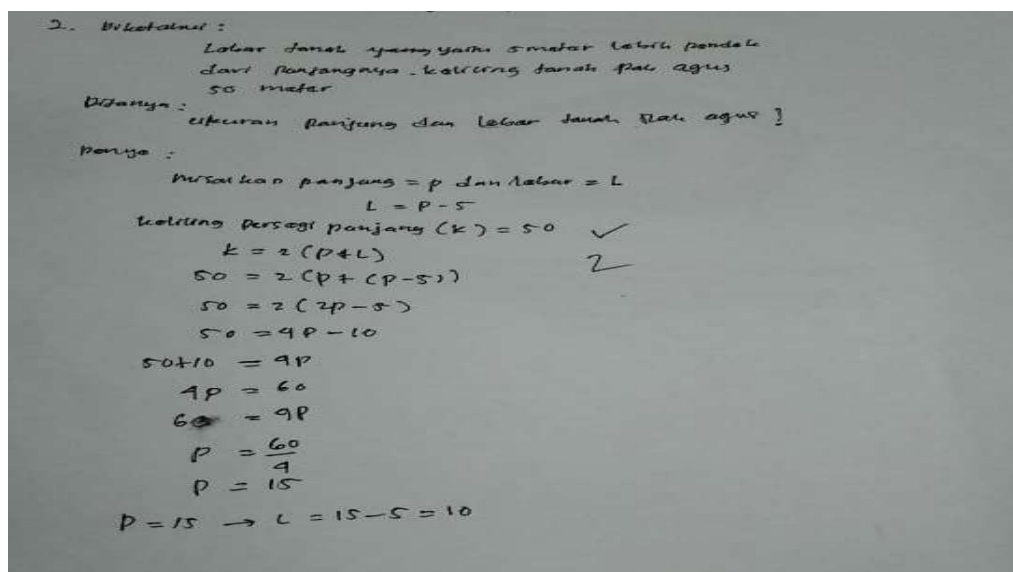 2. Diketahui :
Lebar tanah yang yaitu 5 meter lebih pendek
dari Panjangnya. keliling tanah Pak agus
50 meter
Ditanya :
ukuran Panjang dan lebar tanah Pak agus ?
Penye :
misalkan panjang = p dan lebar = L
L = P - 5
keliling Persegi panjang (k) = 50 ✓
k = 2 (P+L)
2
50 = 2 (P + (P-5))
50 = 2 (2P - 5)
50 = 4P - 10
50+10 = 4P
4P = 60
60 = 4P
P = 60/4
P = 15
P = 15 → L = 15 - 5 = 10